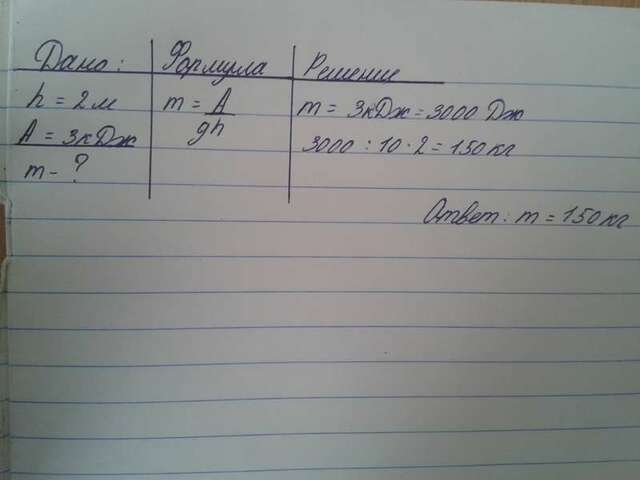 Дано: Формула Решение
h = 2 м m = A/gh m = 3кДж = 3000 Дж
A = 3кДж 3000 : 10 · 2 = 150 кг
m - ?
Ответ: m = 150 кг